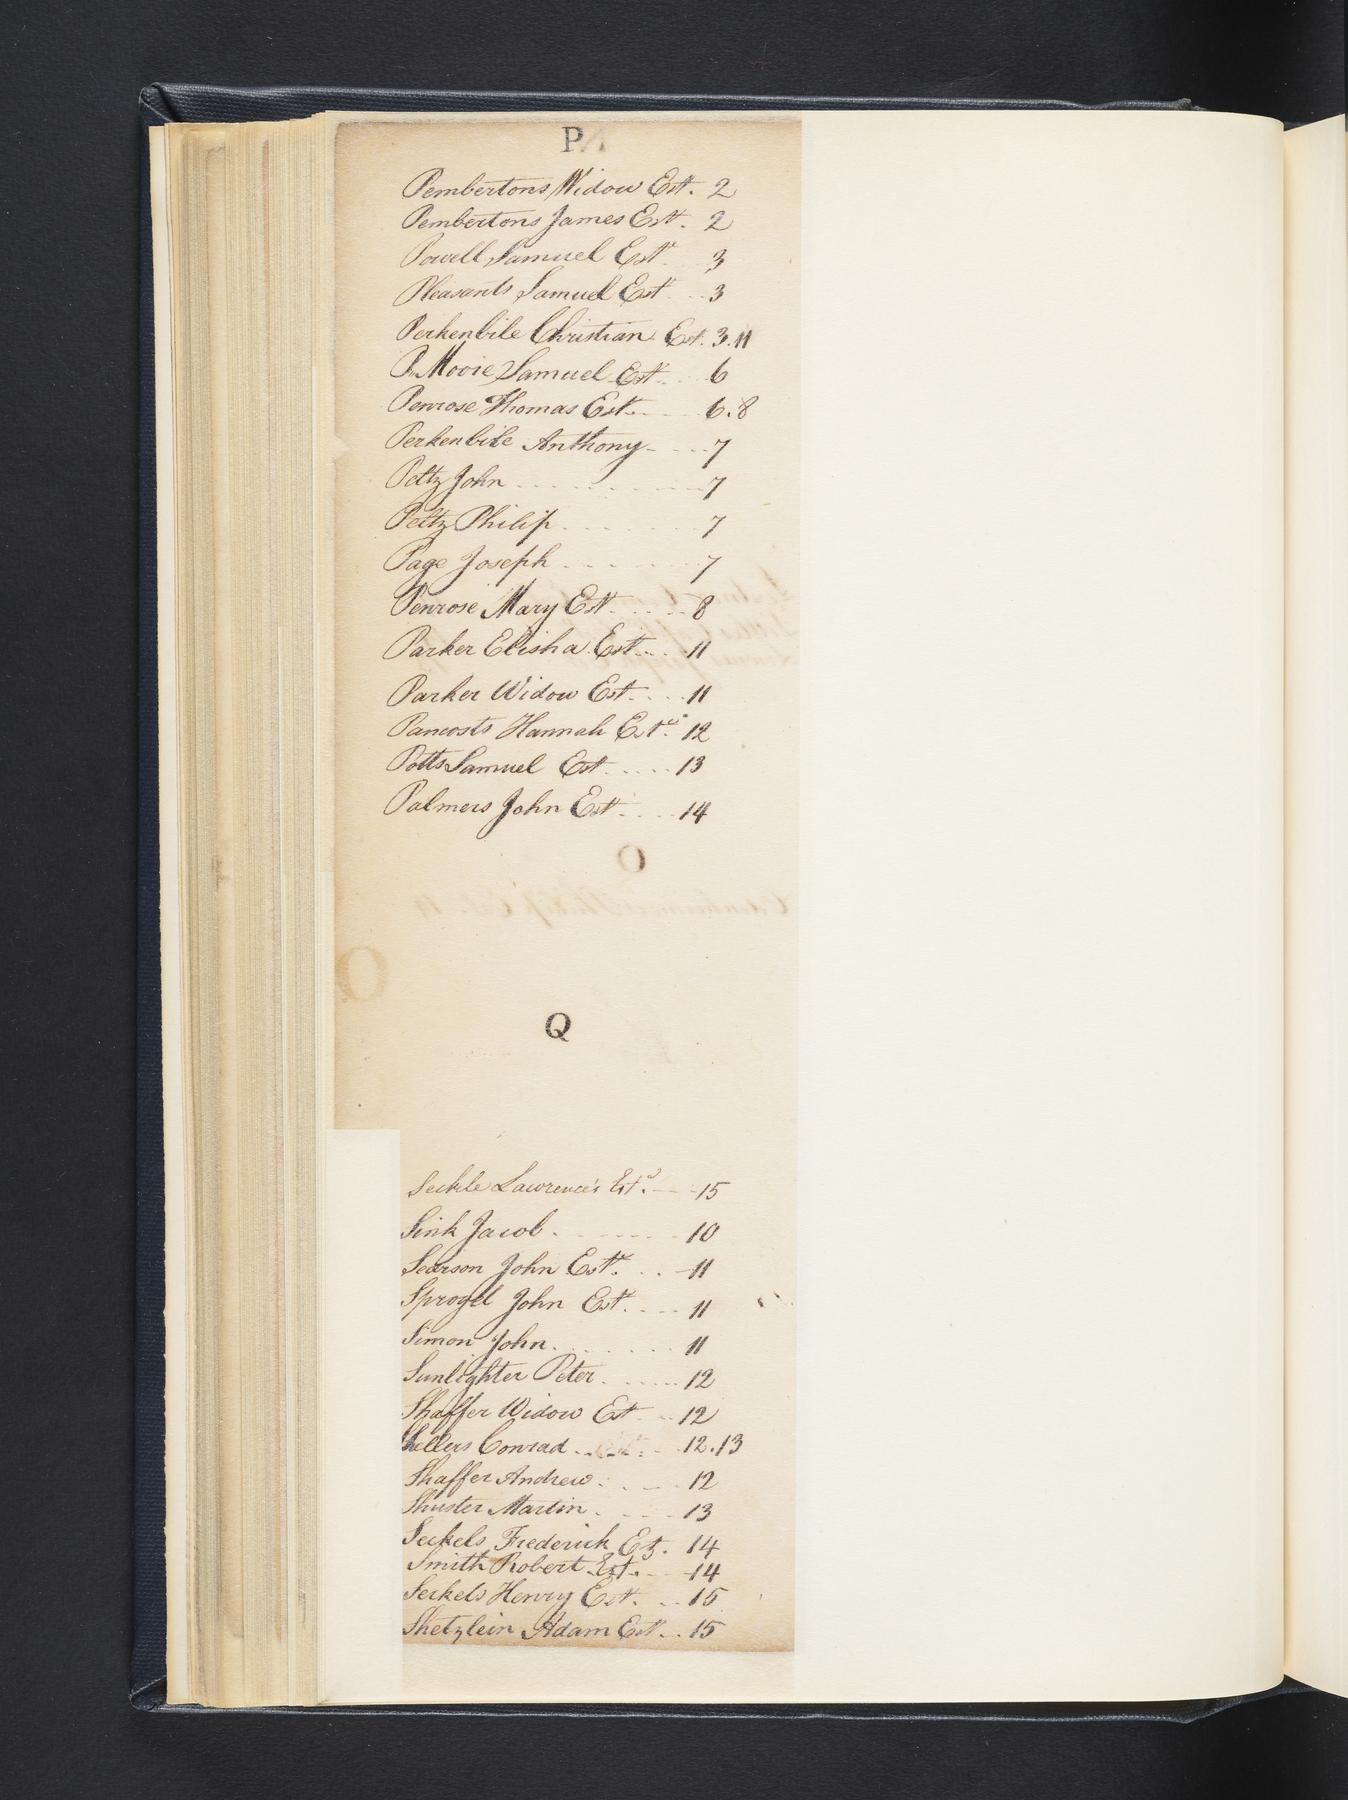 P
Pembertons Widow Est. 2
Pembertons James Est. 2
Powell Samuel Est. 3
Pleasants Samuel Est. .. 3
Perkenbile Christian Est. 3.11
P. Moore Samuel Est. .. 6
Penrose Thomas Est. ..... 6.8
Perkenbile Anthony - ... 7
Peltz John ........ 7
Peltz Philip ....... 7
Page Joseph ...... 7
Penrose Mary Est. ..... 8
Parker Elisha Est. ... 11
Parker Widow Est. ... 11
Pancosts Hannah Este. 12
Potts Samuel Est. .... 13
Palmers John Est. .... 14
O
Q
Seckle Lawrence's Est. --- 15
Sink Jacob ....... 10
Searson John Est. .. - 11
Sprogel John Est. .... 11
Simon John ....... 11
Sunlighter Peter ...... 12
Shaffer Widow Est .. 12
Sellers Conrad ...... 12.13
Shaffer Andrew .... 12
Shuster Martin ..... 13
Seckels Frederick Es. 14
Smith Robert Est. -- 14
Seckels Henry Est. .. 15
Shetzlein Adam Est. .. 15